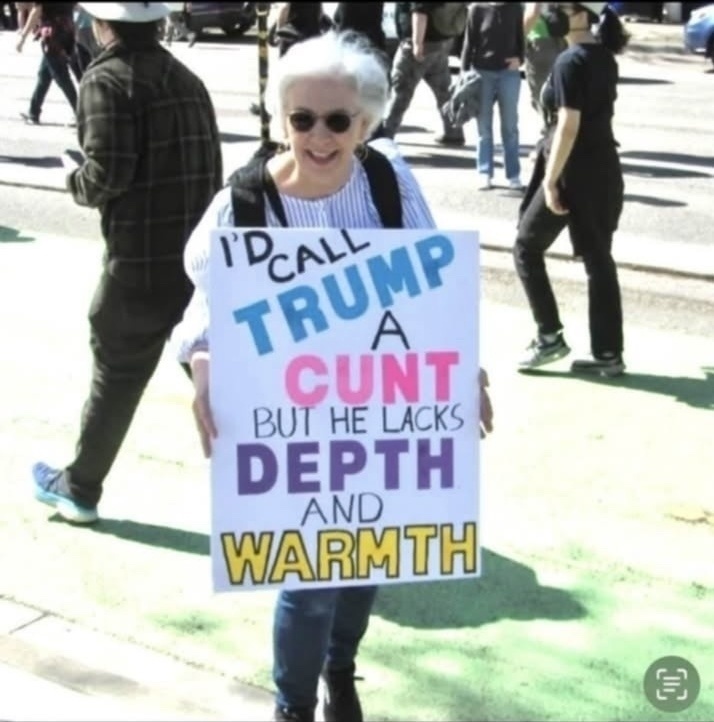 I'D CALL
TRUMP
A
CUNT
BUT HE LACKS
DEPTH
AND
WARMTH